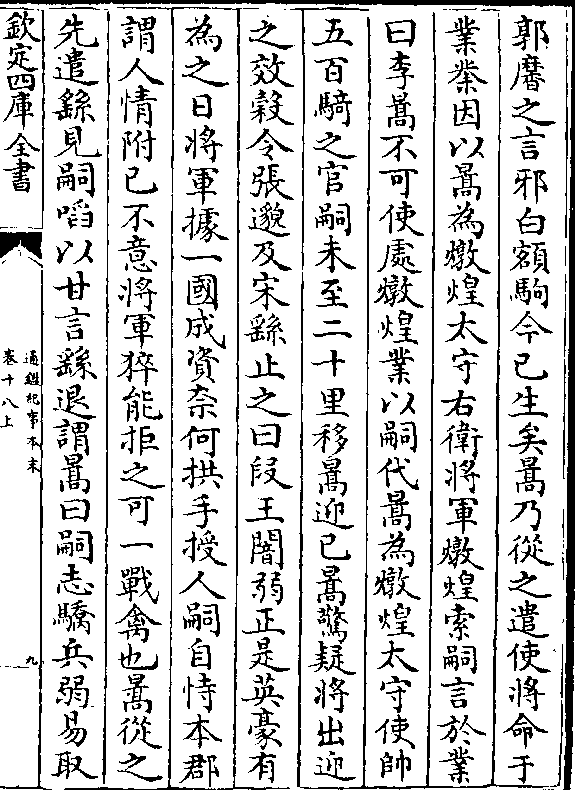 郭黁之言邪白額駒今已生矣暠乃從之遣使將命于
業業因以暠為燉煌太守右衛將軍燉煌索嗣言於業
曰李暠不可使處燉煌業以嗣代暠為燉煌太守使帥
五百騎之官嗣未至二十里移暠迎已暠驚疑將出迎
之效榖令張邈及宋繇止之曰段王闇弱正是英豪有
為之日將軍據一國成資奈何拱手授人嗣自恃本郡
謂人情附已不意將軍猝能拒之可一戰禽也暠從之
先遣繇見嗣啗以甘言繇退謂暠曰嗣志驕兵弱易取
欽定四庫全書
通鑑紀事本末
卷十八上
九